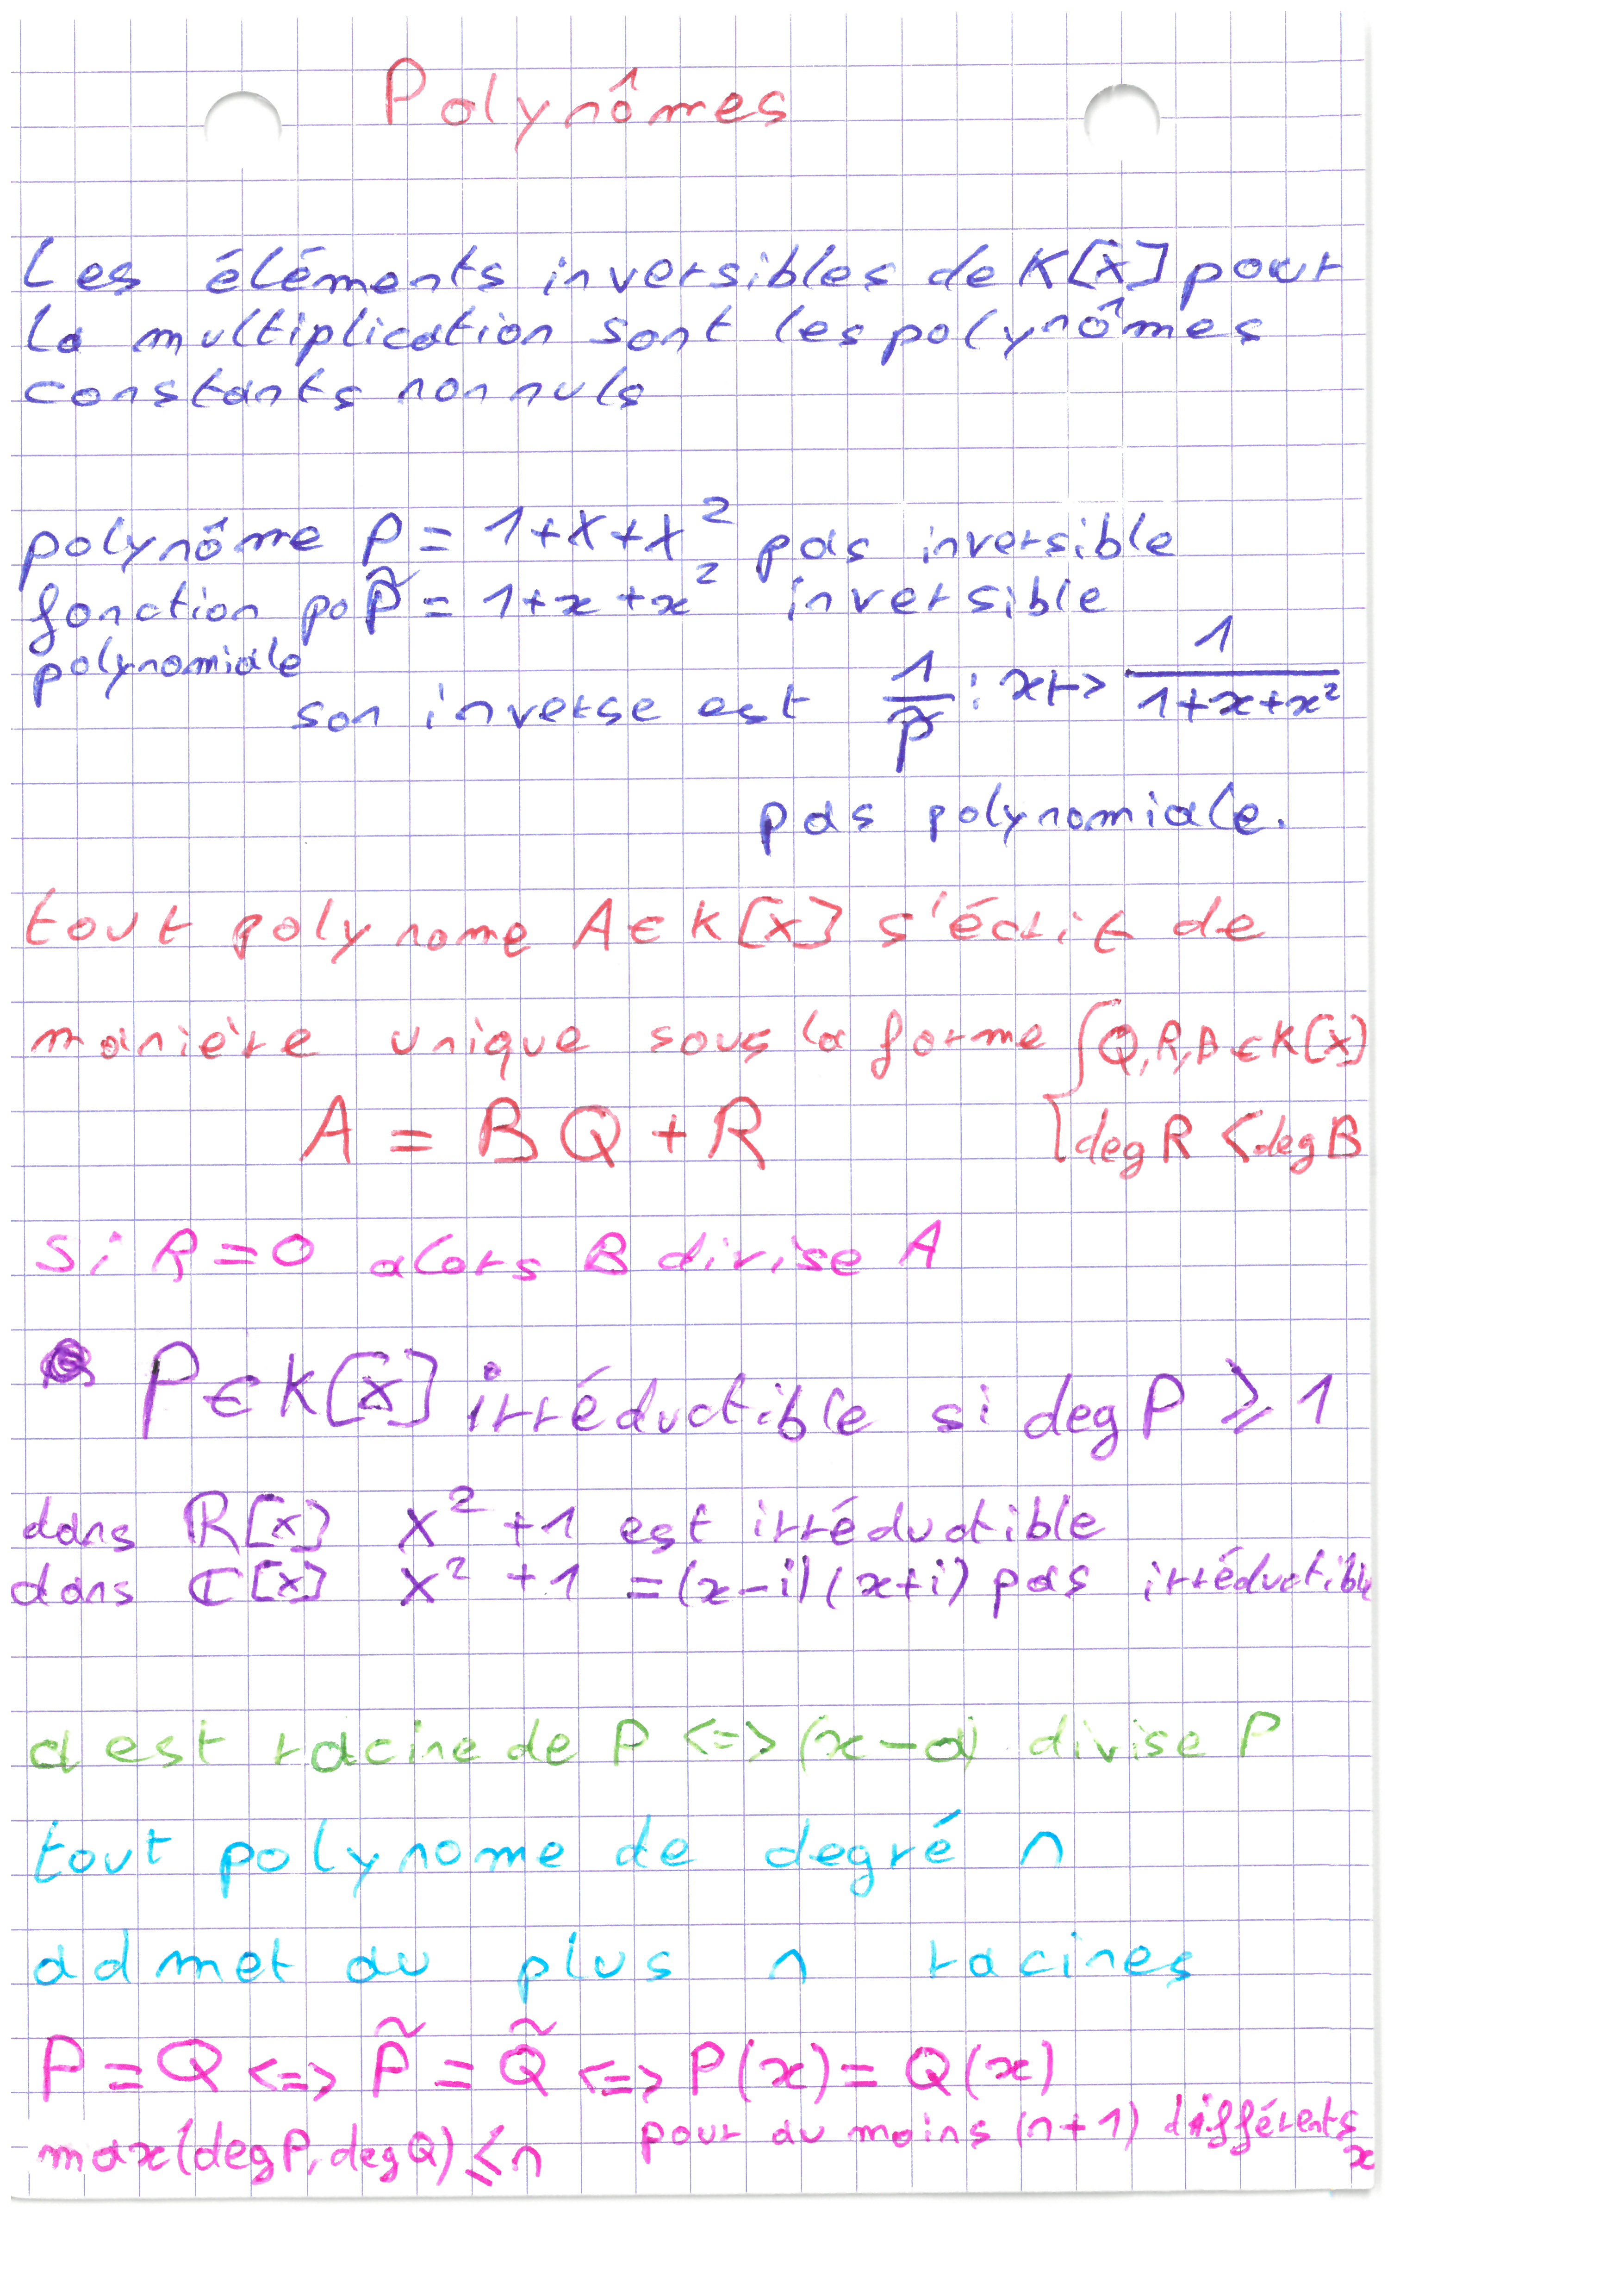 Polynômes
Les éléments inversibles de K[X] pour
la multiplication sont les polynômes
constants non nuls
polynôme P = 1+X+X² pas inversible
fonction po P̃ = 1+x+x² inversible
polynomiale
son inverse est 1/P̃ : x ↦ 1/(1+x+x²)
pas polynomiale.
tout polynome A ∈ K[X] s'écrit de
manière unique sous la forme { Q, R, B ∈ K[X]
A = BQ + R deg R < deg B
si R = 0 alors B divise A
P ∈ K[X] irréductible si deg P ⩾ 1
dans ℝ[X] X² + 1 est irréductible
dans ℂ[X] X² + 1 = (x-i)(x+i) pas irréductible
a est racine de P <=> (x-a) divise P
tout polynome de degré n
admet au plus n racines
P = Q <=> P̃ = Q̃ <=> P(x) = Q(x)
max(deg P, deg Q) ⩽ n pour au moins (n+1) différents
x